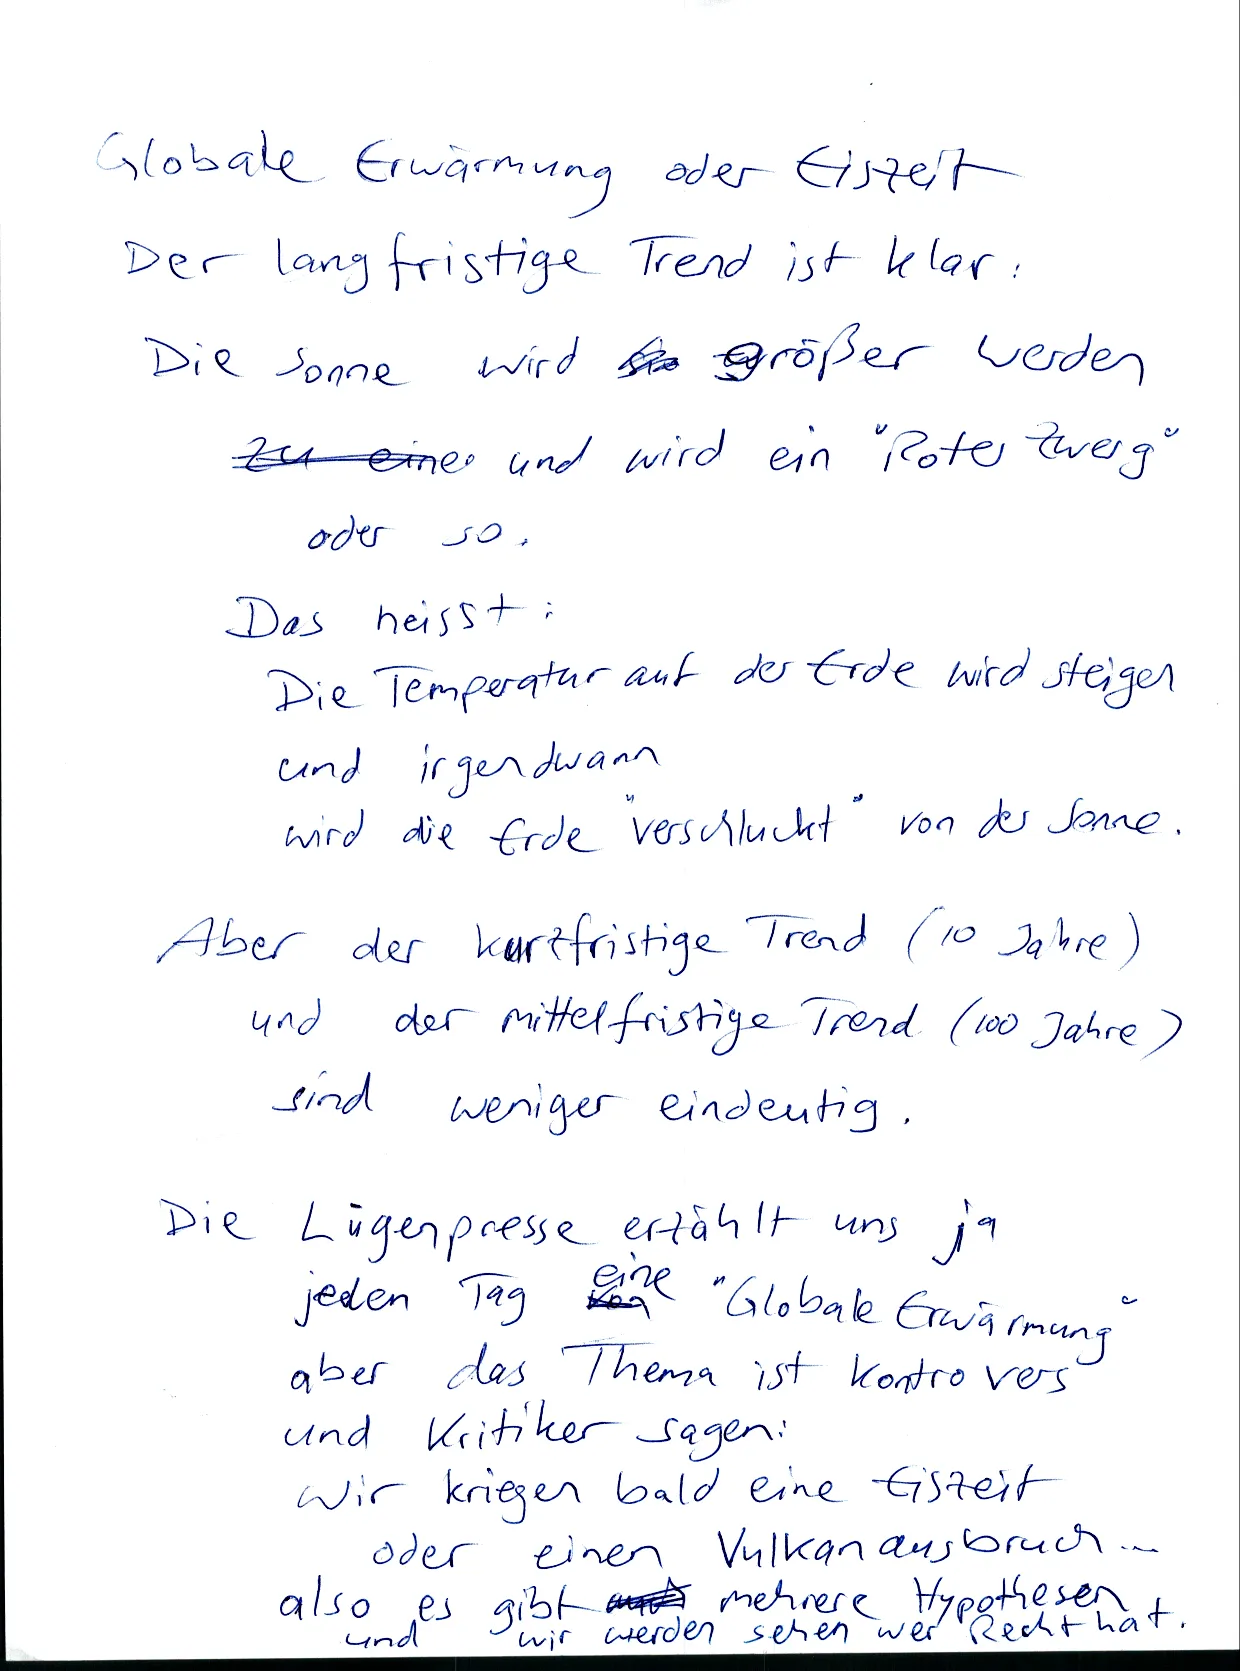 Globale Erwärmung oder Eiszeit
Der langfristige Trend ist klar:
Die Sonne wird größer werden
zu einer und wird ein "Roter Zwerg"
oder so.
Das heisst:
Die Temperatur auf der Erde wird steigen
und irgendwann
wird die Erde "verschluckt" von der Sonne.
Aber der kurzfristige Trend (10 Jahre)
und der mittelfristige Trend (100 Jahre)
sind weniger eindeutig.
Die Lügenpresse erzählt uns ja
jeden Tag eine "Globale Erwärmung"
aber das Thema ist kontrovers
und Kritiker sagen:
Wir kriegen bald eine Eiszeit
oder einen Vulkanausbruch...
also es gibt mehrere Hypothesen
und wir werden sehen wer Recht hat.